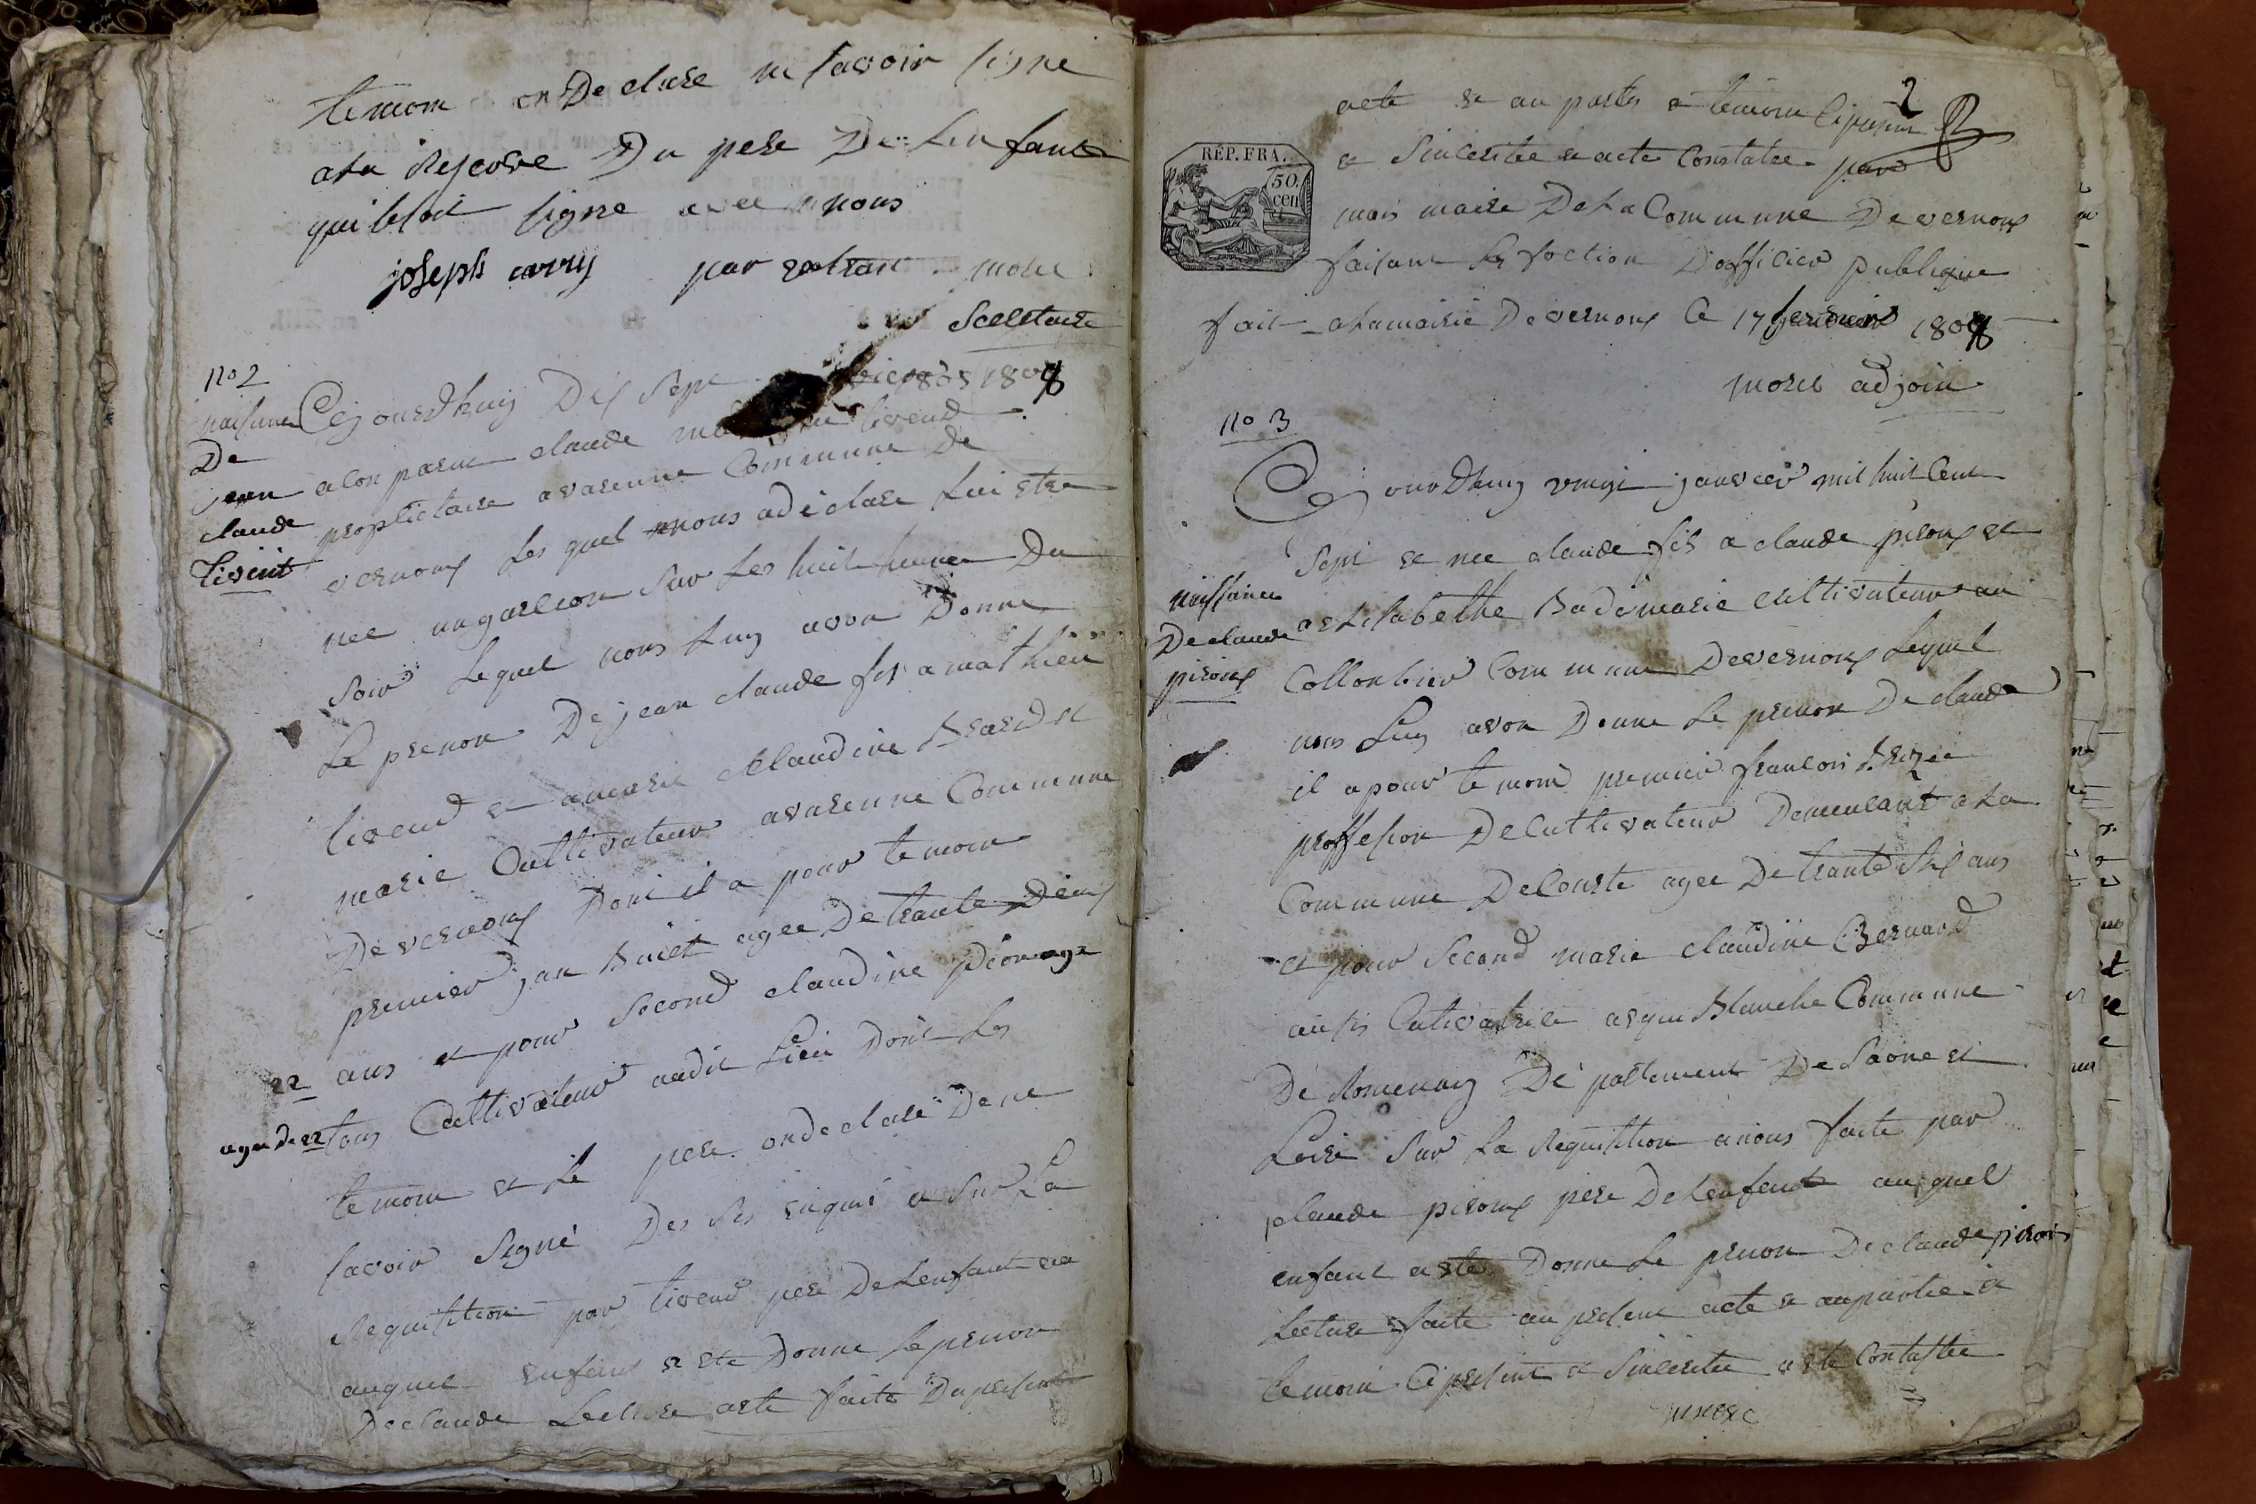 temom on De clare ne savoir signe
a la Reserve Du pere De Lenfant
qui lesoit signe avec nous
joseph carry par extrait morel
Secretaire
no 2
naissance
De
jean
claude
livent
Cejourdhuy Dix Sept 1807
a Con parue claude liveud
proprietaire a varenne Commune De
vernoux Les quel nous a declare Lui etre
nee un garcon Sur Les huit heures Du
Soir Lequel nous Luy avon Donne
Le prenon De jean claude fis a mathieu
liveud et a marie Claudine
marie Cultivateur a varenne Commune
De vernoux Dont il a pour temoin
premier jan Buiet agee De trante Deux
ans et pour Second claudine age
age de 22
22
tous Cultivateur audit Lieu Dont Les
temoin et Le pere on de clare De ne
savoir Signé Des Ses enquis a Sur La
Requisition par liveud pere De Lenfant
auquel enfant a ete Donne Le prenon
De claude Lecture acte faite Du present
2
acte et au partis et temoin Ci present
REP. FRA.
50 cen
et Sincerite acte Constatee par
mois maire De La Commune De vernoux
faisant Les foction D officier publique
fait a la mairie De vernoux Ce 17 1807
morel adjoin
no 3
naissance
De claude
piroux
Cejourdhuy vingt janvier mil huit Cent
Sept et nee claude fis a claude piroux et
a elisabethe marie cultivateur au
Collonbier Commune De vernoux Lequel
nous Luy avon Donne Le prenon De claude
il a pour temoin premier francois
proffession De Cultivateur Demeurant a La
Commune De Courte agee De trante Six ans
et pour Second marie claudine Bernard
ausis Cultivatrice Blanche Commune
De Romenay De partement De Saone et
Loire Sur La Requisition a nous faite par
claude piroux pere De Lenfant au quel
enfant a ete Donne Le prenon De claude piroux
Lecture faite au present acte et au partie et
temoin Ci present et Sincerite a ete Constatee
morel